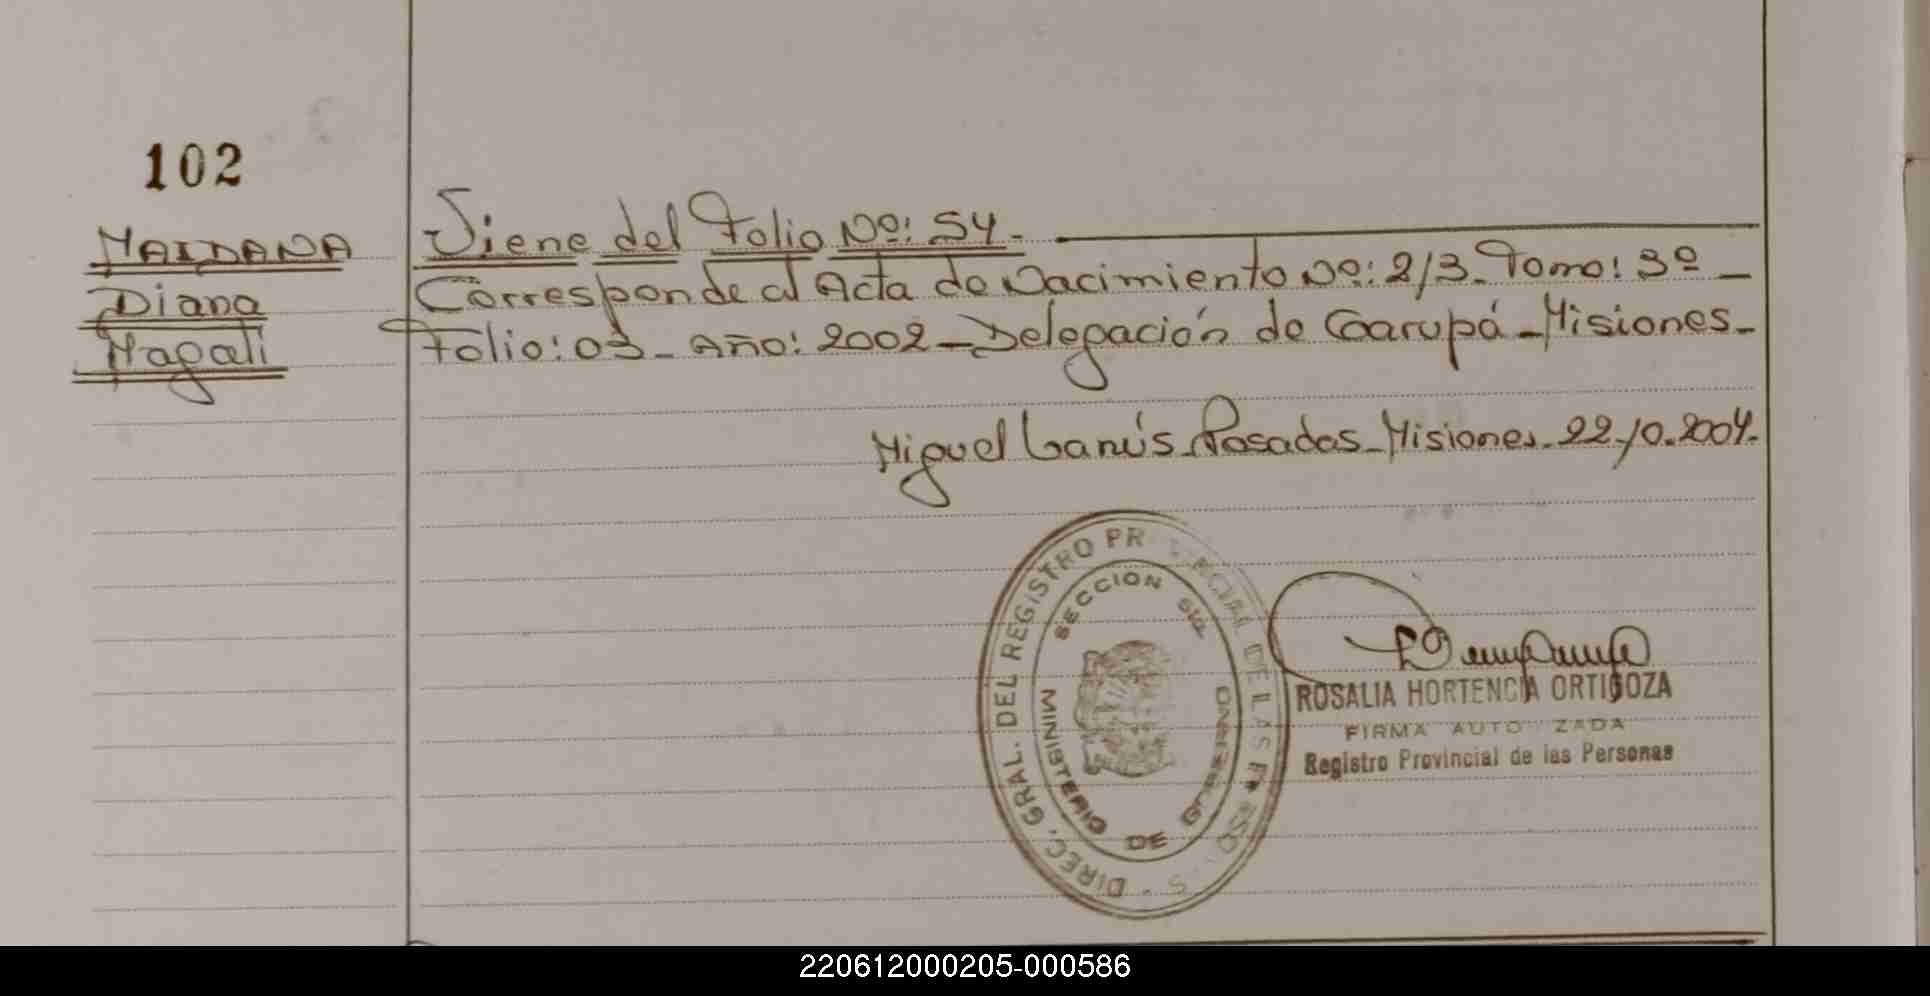 102
MAIDANA
Diana
Magali
Viene del Folio Nº: 54.
Corresponde al Acta de Nacimiento Nº: 213. Tomo: 3º
Folio: 03_ Año: 2002_Delegación de Garupá_Misiones_
Miguel Lanús_Posadas_Misiones_22.10.2004.
DIREC. GRAL. DEL REGISTRO PR NCIAL DE LAS
SECCION
MINISTERIO DE GOBIERNO
ROSALIA HORTENCIA ORTIGOZA
FIRMA AUTO ZADA
Registro Provincial de las Personas
220612000205-000586